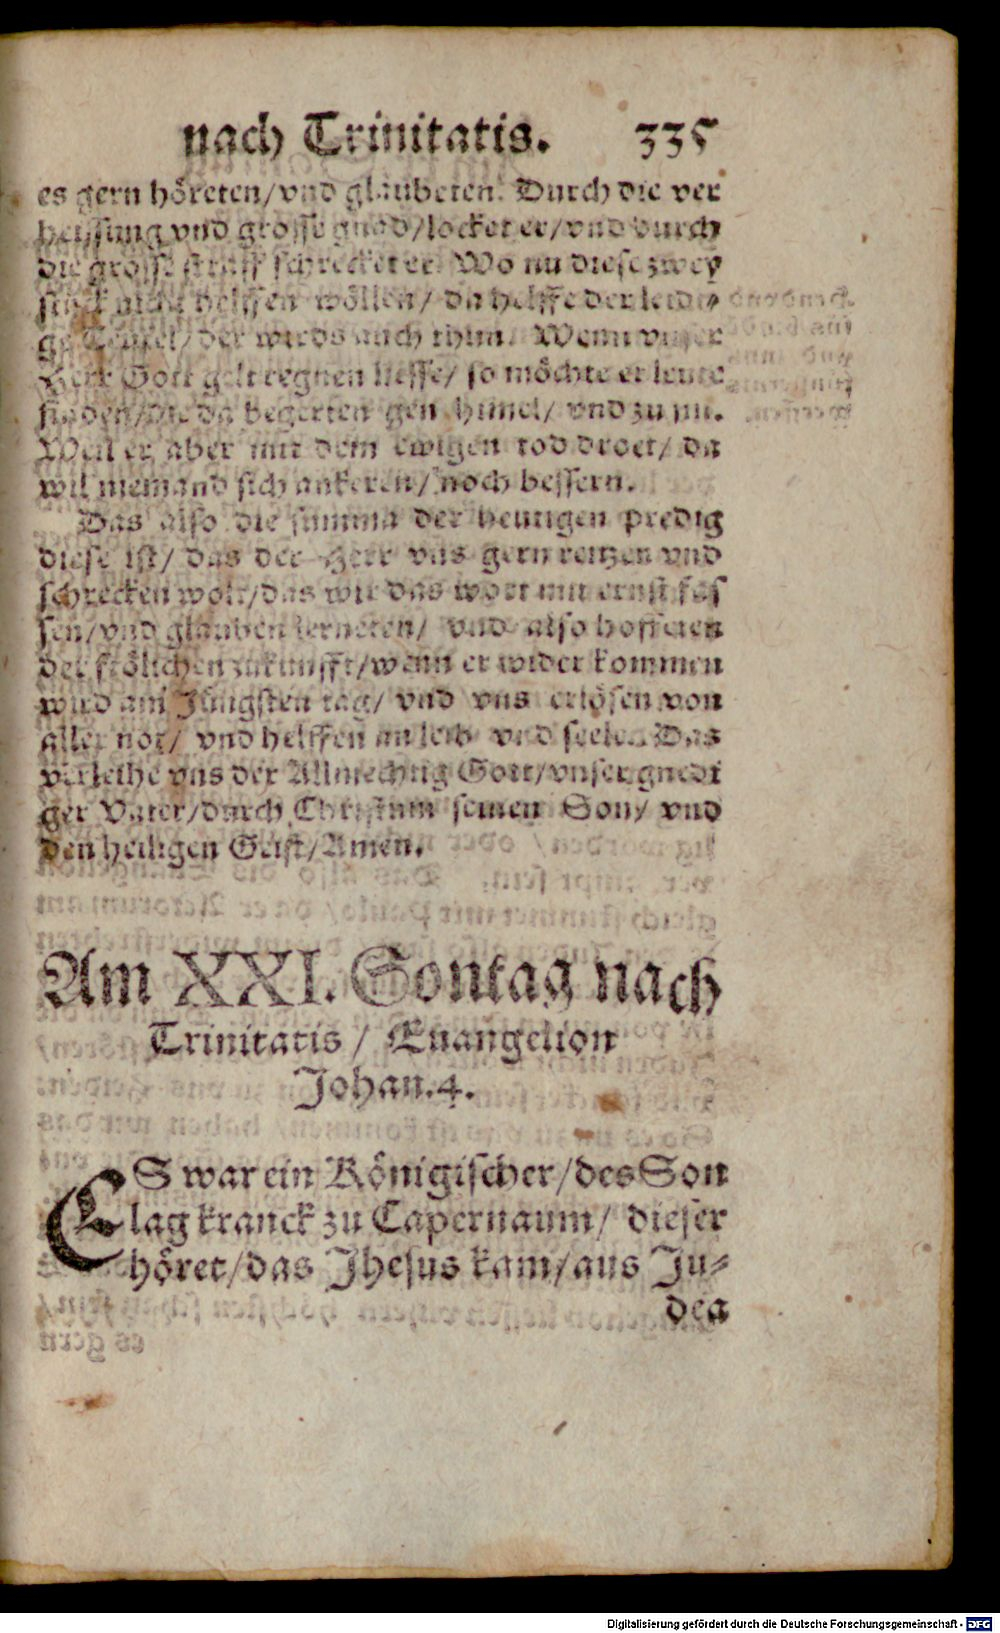 nach Trinitatis. 335
es gern höreten/vnd glaubeten. Durch die ver
heissung vnd grosse gnad/locket er/vnd durch
die grosse straff schrecket er. Wo nu diese zwey
stück nicht helffen wöllen/ da helffe der leidi-
ge Teufel/der wirds auch thun. Wenn vnser
Herr Gott gelt regnen liesse/ so möchte er leute
finden/die da begerten gen himel/ vnd zu jm.
Weil er aber mit dem ewigen tod droet/ da
wil niemand sich ankeren/ noch bessern.
Das also die summa der heutigen predig
diese ist/ das der Herr vns gern reitzen vnd
schrecken wolt/das wir das wort mit ernst fas
sen/vnd glauben lerneten/ vnd also hoffeten
der frölichen zukunfft/wenn er wider kommen
wird am Jüngsten tag/ vnd vns erlösen von
aller not/ vnd helffen an leib vnd seele. Das
verleihe vns der Allmechtig Gott/vnser gnedi
ger Vater/durch Christum seinen Son/ vnd
den heiligen Geist/Amen.
Am XXI. Sontag nach
Trinitatis / Euangelion
Johan.4.
ES war ein Königischer/des Son
lag kranck zu Capernaum/ dieser
höret/das Jhesus kam/aus Ju-
dea
Digitalisierung gefördert durch die Deutsche Forschungsgemeinschaft - DFG